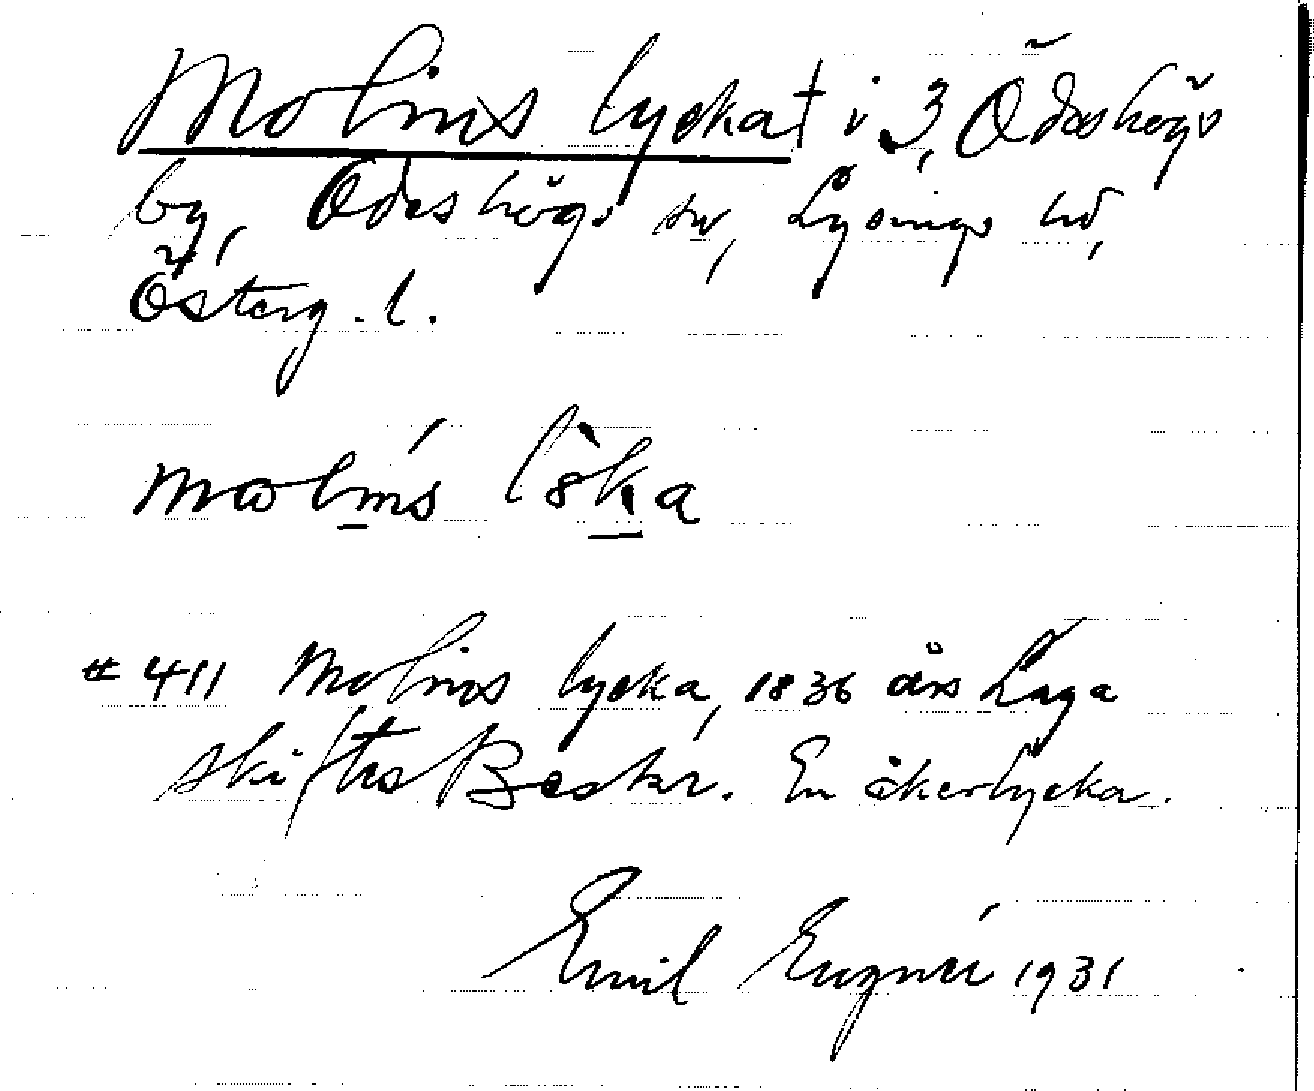 Molins lycka† i 3, Ödeshögs
by, Ödeshögs sn, Lysings hd,
Österg. l.
# 411 Molins lycka, 1836 års Laga
skiftes Beskr. En åkerlycka.
Emil 1931